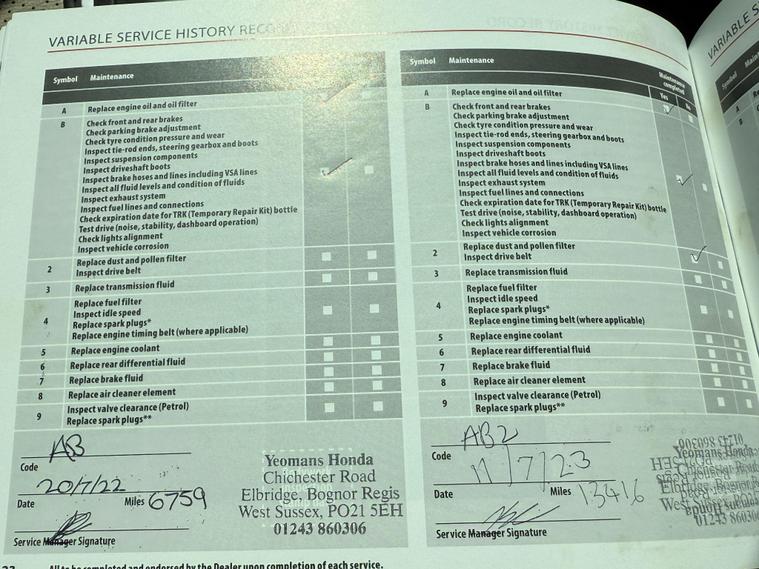 VARIABLE SERVICE HISTORY
VARIABLE S
Symbol Maintenance
A Replace engine oil and oil filter
B Check front and rear brakes
Check parking brake adjustment
Check tyre condition pressure and wear
Inspect tie-rod ends, steering gearbox and boots
Inspect suspension components
Inspect driveshaft boots
Inspect brake hoses and lines including VSA lines
Inspect all fluid levels and condition of fluids
Inspect exhaust system
Inspect fuel lines and connections
Check expiration date for TRK (Temporary Repair Kit) bottle
Test drive (noise, stability, dashboard operation)
Check lights alignment
Inspect vehicle corrosion
2 Replace dust and pollen filter
Inspect drive belt
3 Replace transmission fluid
4 Replace fuel filter
Inspect idle speed
Replace spark plugs*
Replace engine timing belt (where applicable)
5 Replace engine coolant
6 Replace rear differential fluid
7 Replace brake fluid
8 Replace air cleaner element
9 Inspect valve clearance (Petrol)
Replace spark plugs**
AB
Code
20/7/22
Date Miles 6759
Service Manager Signature
Yeomans Honda
Chichester Road
Elbridge, Bognor Regis
West Sussex, PO21 5EH
01243 860306
Symbol Maintenance Maintenance completed
Yes No
A Replace engine oil and oil filter
B Check front and rear brakes
Check parking brake adjustment
Check tyre condition pressure and wear
Inspect tie-rod ends, steering gearbox and boots
Inspect suspension components
Inspect driveshaft boots
Inspect brake hoses and lines including VSA lines
Inspect all fluid levels and condition of fluids
Inspect exhaust system
Inspect fuel lines and connections
Check expiration date for TRK (Temporary Repair Kit) bottle
Test drive (noise, stability, dashboard operation)
Check lights alignment
Inspect vehicle corrosion
2 Replace dust and pollen filter
Inspect drive belt
3 Replace transmission fluid
4 Replace fuel filter
Inspect idle speed
Replace spark plugs*
Replace engine timing belt (where applicable)
5 Replace engine coolant
6 Replace rear differential fluid
7 Replace brake fluid
8 Replace air cleaner element
9 Inspect valve clearance (Petrol)
Replace spark plugs**
AB2
Code
11/7/23
Date Miles 13416
Service Manager Signature
All to be completed and endorsed by the Dealer upon completion of each service.